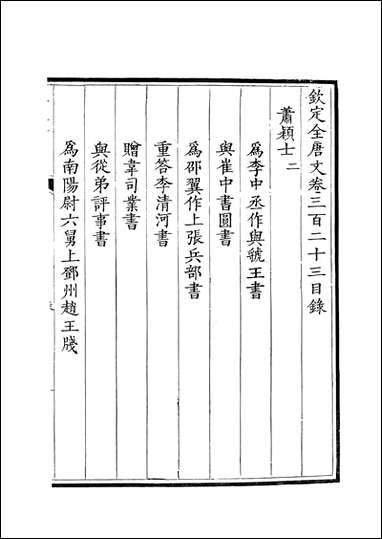 欽定全唐文卷三百二十三目錄
蕭穎士二
為李中丞作與虢王書
與崔中書圓書
為邵翼作上張兵部書
重答李清河書
贈韋司業書
與從弟評事書
為南陽尉六舅上鄧州趙王牋